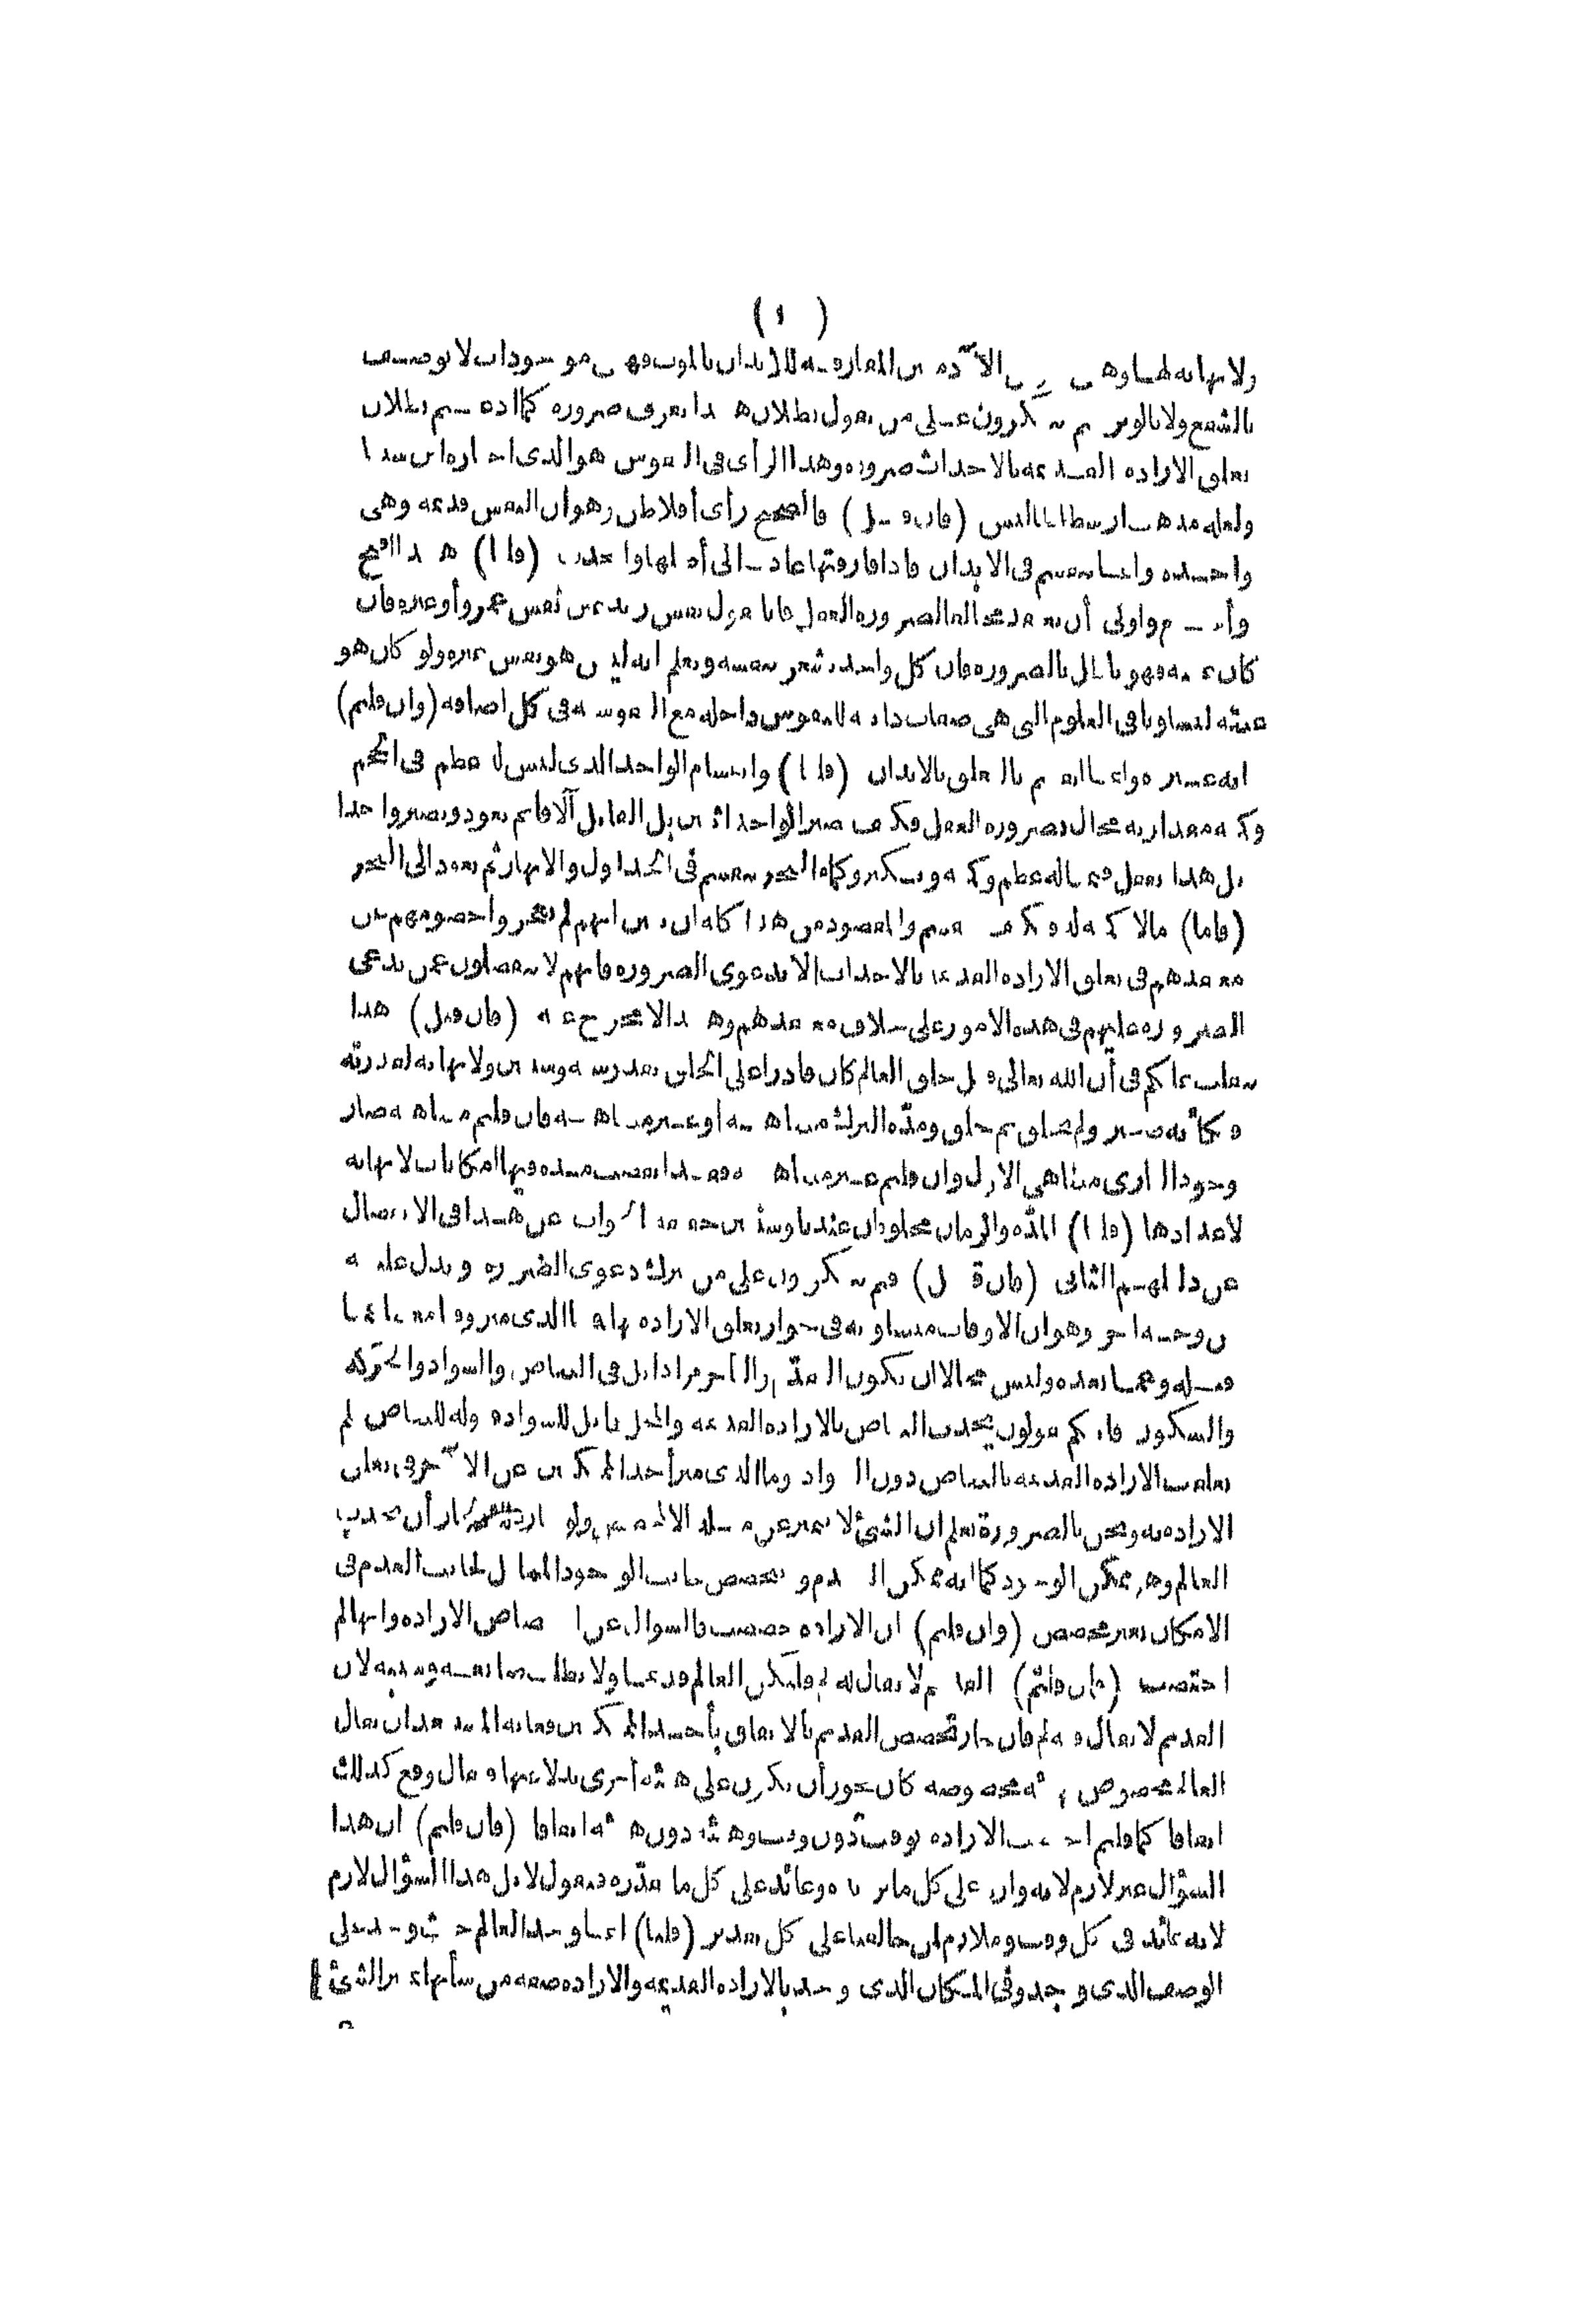 ( ١ )
ولا نهاية لها وهى نفوس الآدميين المفارقة للأبدان بالموت فهى موجودات لا توصف
بالشفع ولا بالوتر بم تنكرون على من يقول بطلان هذا يعرف ضرورة كما ادعيتم بطلان
تعلق الارادة القديمة بالاحداث ضرورة وهذا الرأى فى النفوس هو الذى اختاره ابن سينا
ولعله مذهب ارسطاطاليس (فان قيل) فالصحيح رأى أفلاطن وهو ان النفس قديمة وهى
واحدة وانما تنقسم فى الابدان فاذا فارقتها عادت الى أصلها واتحدت (قلنا) هذا أقبح
وأشنع وأولى أن يعتقد مخالفا لضرورة العقل فانا نقول نفس زيد عين نفس عمرو أو غيره فان
كان عينه فهو باطل بالضرورة فان كل واحد يشعر بنفسه ويعلم انه ليس هو نفس غيره ولو كان هو
عينه لتساويا فى العلوم التى هى صفات ذاتية للنفوس داخلة مع النفوس فى كل اضافة (وان قلتم)
انه غيره وانما انقسم بالتعلق بالابدان (قلنا) وانقسام الواحد الذى ليس له عظم فى الحجم
وكمية مقدارية محال بضرورة العقل فكيف يصير الواحد اثنين بل ألفا بل آلافا ثم يعود ويصير واحدا
بل هذا يعقل فيما له عظم وكمية وتكثر كماء البحر ينقسم فى الجداول والانهار ثم يعود الى البحر
(فاما) مالا كمية له فكيف ينقسم والمقصود من هذا كله ان نبين انهم لم يعجزوا خصومهم عن
معتقدهم فى تعلق الارادة القديمة بالاحداث الا بدعوى الضرورة فانهم لا ينفصلون عمن يدعى
الضرورة عليهم فى هذه الامور على خلاف معتقدهم وهذا لا مخرج عنه (فان قيل) هذا
ينقلب عليكم فى أن الله تعالى قبل خلق العالم كان قادرا على الخلق بقدر سنة وسنتين ولا نهاية لقدرته
فكأنه صبر ولم يخلق ثم خلق ومدة الترك متناهية أو غير متناهية فان قلتم متناهية صار
وجود البارى متناهى الاول وان قلتم غير متناهية فقد انقضت مدة فيها امكانات لا نهاية
لاعدادها (قلنا) المدة والزمان مخلوقان عندنا وسنبين حقيقة الجواب عن هذا فى الانفصال
عن دليلهم الثانى (فان قيل) فبم تنكرون على من ترك دعوى الضرورة ويدل عليه
من وجه آخر وهو ان الاوقات متساوية فى جواز تعلق الارادة بها فما الذى ميز وقتا معينا عما
قبله وعما بعده وليس محالا ان يكون التقدم والتأخر مرادا بل فى البياض والسواد والحركة
والسكون فانكم تقولون يحدث البياض بالارادة القديمة والمحل قابل للسواد قبوله للبياض فلم
تعلقت الارادة القديمة بالبياض دون السواد وما الذى ميز أحد الممكنين عن الآخر فى تعلق
الارادة به ونحن بالضرورة نعلم ان الشئ لا يتميز عن مثله الا بمخصص ولو جاز أن يحدث
العالم وهو ممكن الوجود كما انه ممكن العدم ويتخصص جانب الوجود المماثل لجانب العدم فى
الامكان بغير مخصص (وان قلتم) ان الارادة خصصت فالسؤال عن اختصاص الارادة وانها لم
اختصت (فان قلتم) القديم لا يقال له لم فليكن العالم قديما ولا يطلب صانعه وسببه لان
القديم لا يقال فيه لم فان جاز تخصص القديم بالاتفاق بأحد الممكنين فغاية المستبعد ان يقال
العالم مخصوص بهيئة مخصوصة كان يجوز أن يكون على هيئة أخرى بدلا عنها فيقال وقع كذلك
اتفاقا كما قلتم اختصت الارادة بوقت دون وقت وهيئة دون هيئة اتفاقا (فان قلتم) ان هذا
السؤال غير لازم لانه وارد على كل ما يريده وعائد على كل ما يقدره فنقول لا بل هذا السؤال لازم
لانه عائد فى كل وقت وملازم لمن خالفنا على كل تقدير (قلنا) انما وجد العالم حيث وجد على
الوصف الذى وجد وفى المكان الذى وجد بالارادة القديمة والارادة صفة من شأنها تمييز الشئ